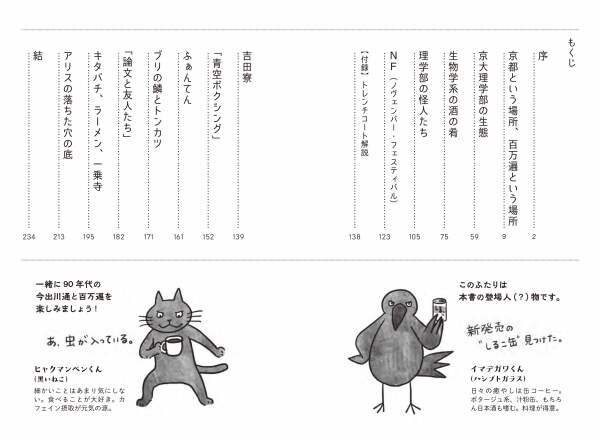 もくじ
序 2
京都という場所、百万遍という場所 9
京大理学部の生態 59
生物学系の酒の肴 75
理学部の怪人たち 105
NF(ノヴェンバー・フェスティバル) 123
【付録】トレンチコート解説 138
吉田寮 139
「青空ボクシング」 152
ふぁんてん 161
ブリの鱗とトンカツ 171
「論文と友人たち」 182
キタバチ、ラーメン、一乗寺 195
アリスの落ちた穴の底 213
結 234
このふたりは
本書の登場人(?)物です。
新発売の
“しるこ缶”見つけた。
イマデガワくん
(ハシブトガラス)
日々の癒やしは缶コーヒー。
ポタージュ系、汁粉缶、もちろ
ん日本酒も嗜む。料理が得意。
一緒に90年代の
今出川通と百万遍を
楽しみましょう!
あ、虫が入っている。
ヒャクマンベンくん
(黒いねこ)
細かいことはあまり気にしな
い。食べることが大好き。カ
フェイン摂取が元気の源。